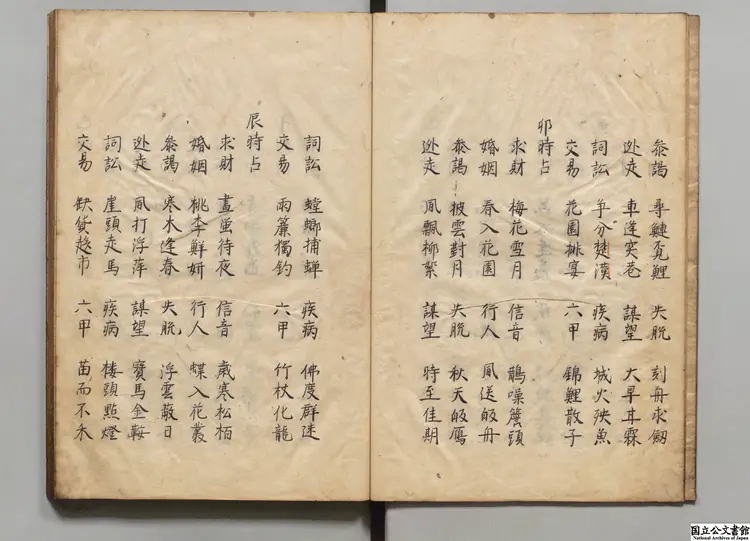 叅謁 尋鰱覔鯉 失脫 刻舟求劔
逃走 車逢窄巷 謀望 大旱甘霖
詞訟 爭分楚漢 疾病 城火殃魚
交易 花園排宴 六甲 錦鯉散子
卯時占
求財 梅花雪月 信音 鵲噪簷頭
婚姻 春入花園 行人 風送皈舟
叅謁 披雲對月 失脫 秋天皈鴈
逃走 風飄柳絮 謀望 時至佳期
詞訟 螳螂捕蟬 疾病 佛度群迷
交易 雨簾獨釣 六甲 竹杖化龍
辰時占
求財 晝蚕待夜 信音 歲寒松栢
婚姻 桃李鮮妍 行人 蝶入花叢
叅謁 寒木逢春 失脫 浮雲蔽日
逃走 風打浮萍 謀望 寶馬金鞍
詞訟 崖頭走馬 疾病 楼頭點燈
交易 缺貨趍市 六甲 苗而不禾
国立公文書館
National Archives of Japan